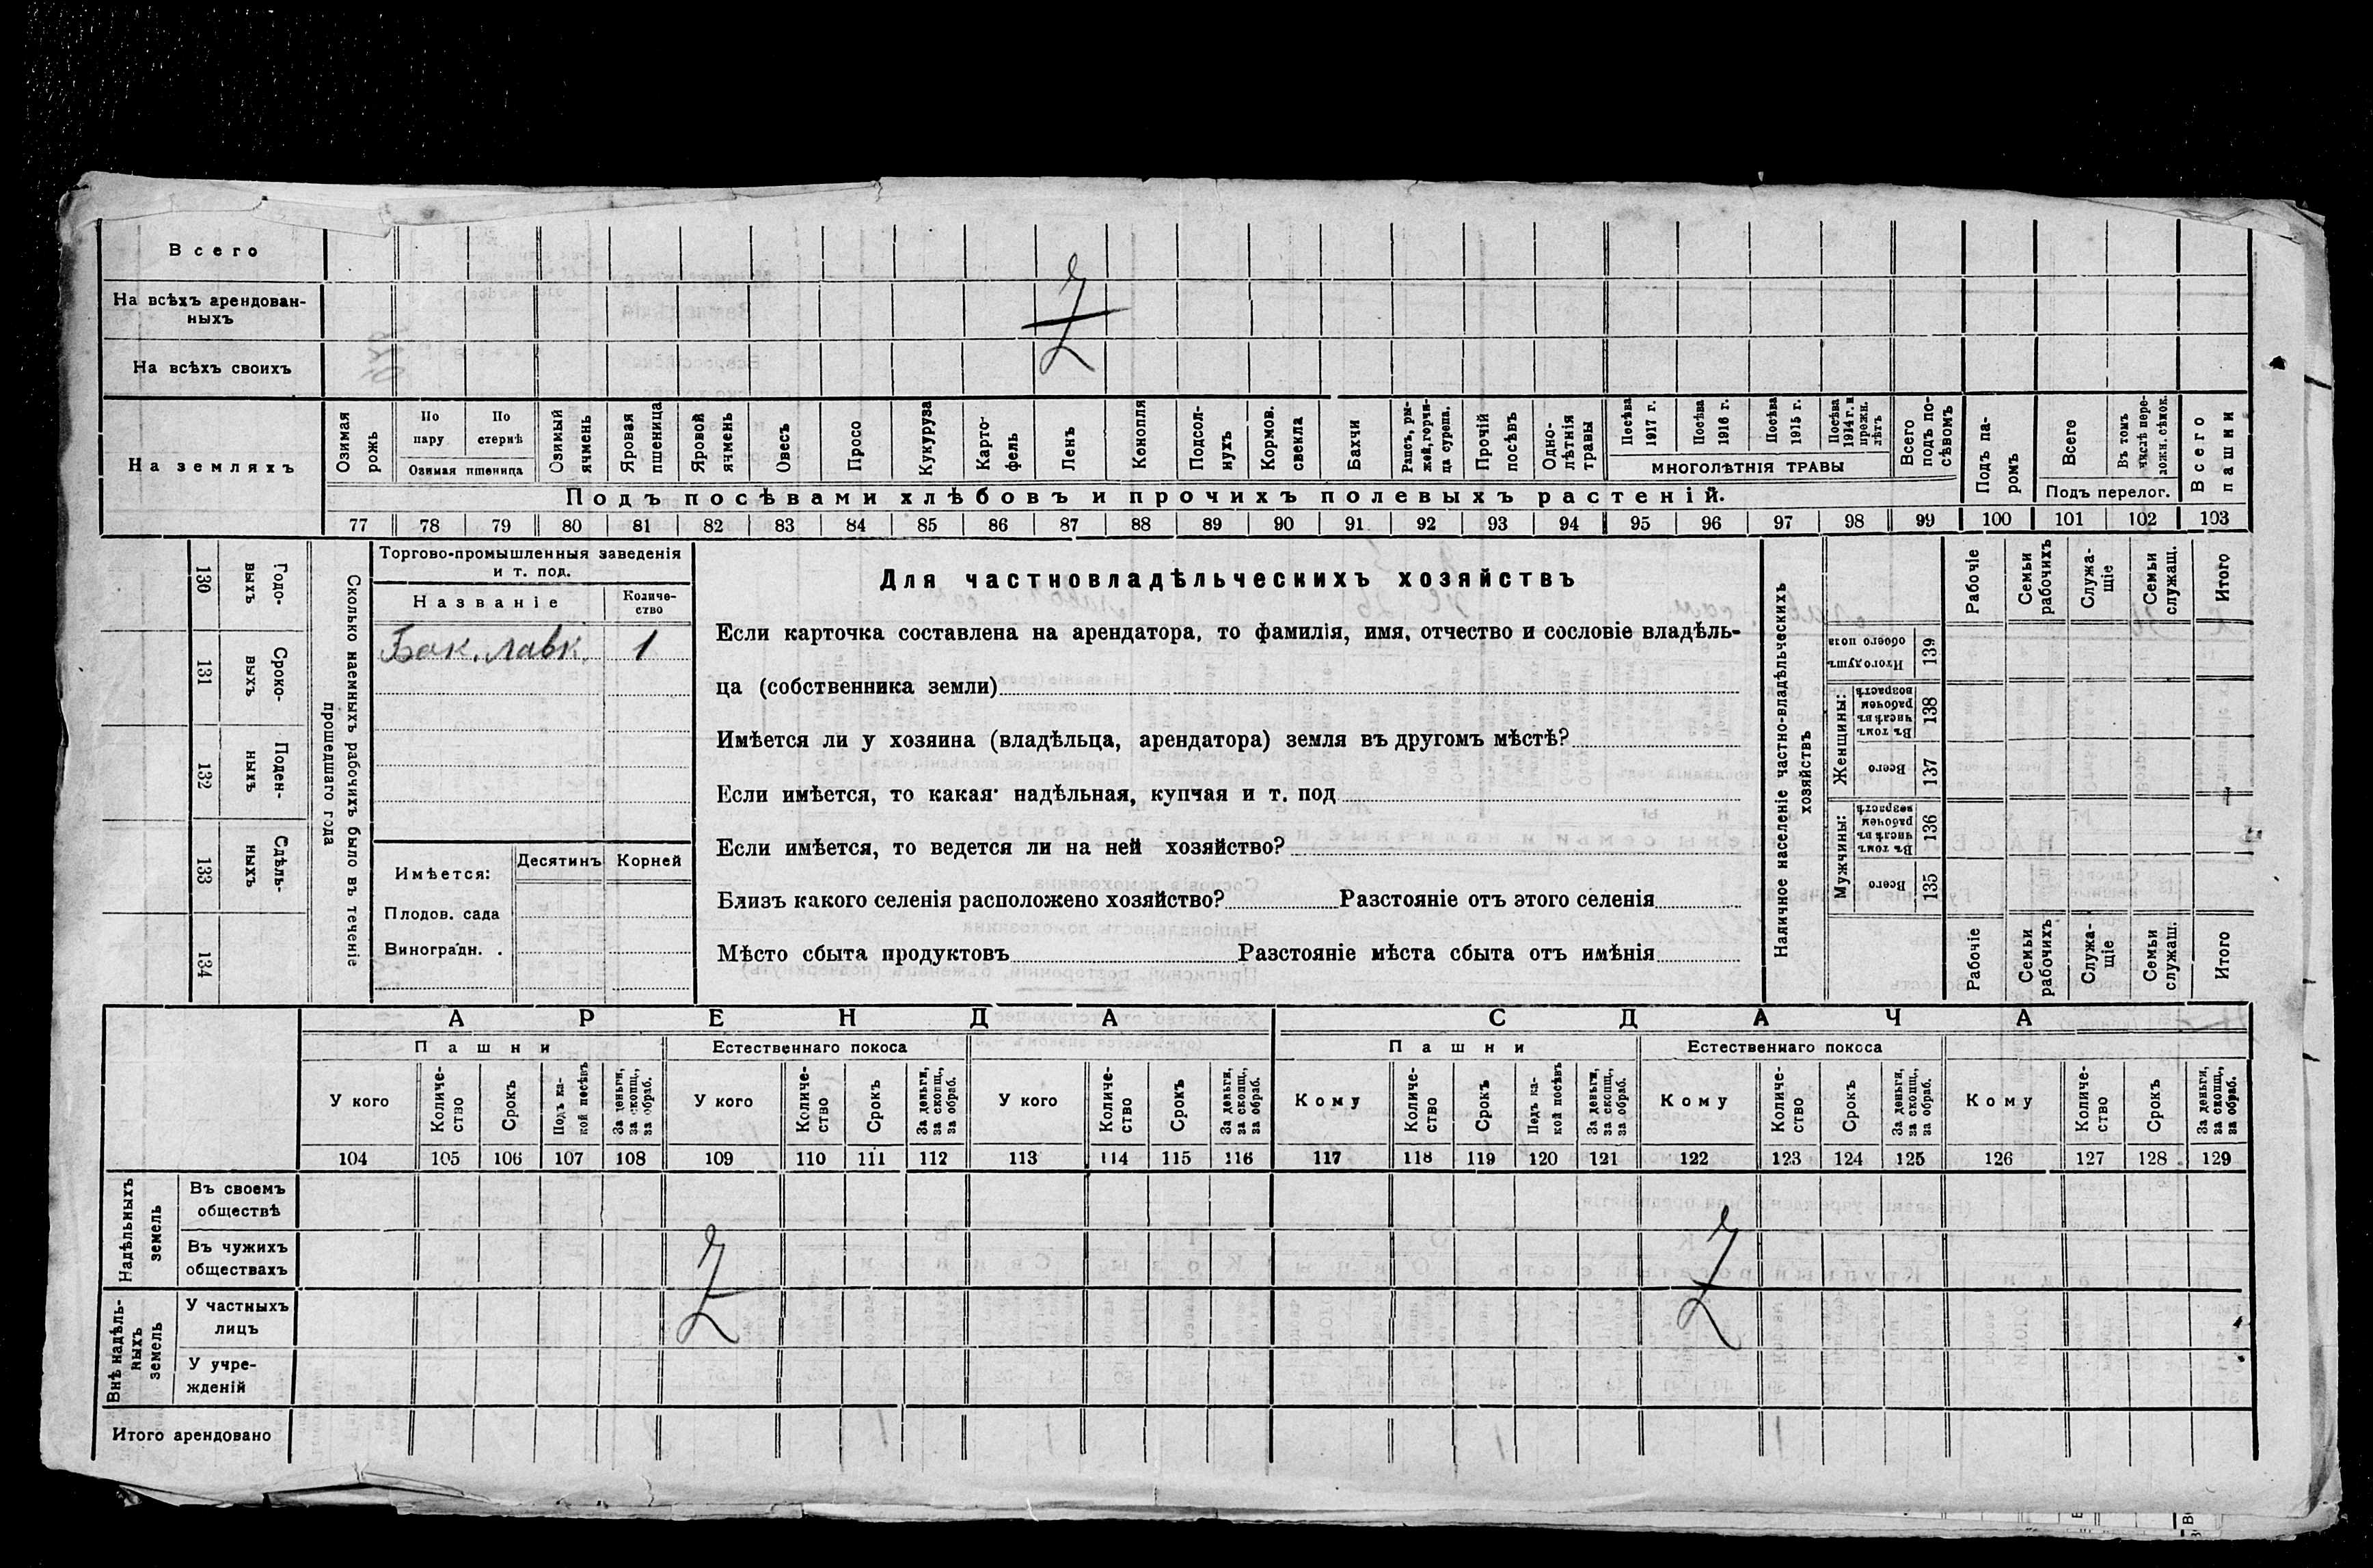 Всего
На всѣхъ арендован-
ныхъ
На всѣхъ своихъ
На земляхъ
Озимая рожь
По пару
По стернѣ
Озимая пшеница
Озимый ячмень
Яровая пшеница
Яровой ячмень
Овесъ
Просо
Кукуруза
Карто-
фель
Ленъ
Конопля
Подсол-
нухъ
Кормов.
свекла
Бахчи
Рапсъ, ры-
жей, горчи-
ца сурепа.
Прочій посѣвъ
Одно-
лѣтнія
травы
Посѣва 1917 г.
Посѣва 1916 г.
Посѣва 1915 г.
Посѣва 1914 г. и прежн. лѣтъ
МНОГОЛѢТНІЯ ТРАВЫ
Всего подъ по-
сѣвомъ
Подъ па-
ромъ
Всего
Въ томъ числѣ пере-
ложн. сѣнок.
Подъ перелог.
Всего пашни
Подъ посѣвами хлѣбовъ и прочихъ полевыхъ растеній.
77 78 79 80 81 82 83 84 85 86 87 88 89 90 91 92 93 94 95 96 97 98 99 100 101 102 103
130 Годо-
выхъ
131 Сроко-
выхъ
132 Поден-
ныхъ
133 Сдѣль-
ныхъ
134
Сколько наемныхъ рабочихъ было въ теченіе
прошедшаго года
Торгово-промышленныя заведенія
и т. под.
Названіе
Количе-
ство
Бак. лавк. 1
Имѣется: Десятинъ Корней
Плодов. сада
Виноградн. .
Для частновладѣльческихъ хозяйствъ
Если карточка составлена на арендатора, то фамилія, имя, отчество и сословіе владѣль-
ца (собственника земли)
Имѣется ли у хозяина (владѣльца, арендатора) земля въ другомъ мѣстѣ?
Если имѣется, то какая: надѣльная, купчая и т. под
Если имѣется, то ведется ли на ней хозяйство?
Близъ какого селенія расположено хозяйство? Разстояніе отъ этого селенія
Мѣсто сбыта продуктовъ Разстояніе мѣста сбыта отъ имѣнія
Наличное населеніе частно-владѣльческихъ
хозяйствъ
Рабочіе
Семьи рабочихъ
Служа-
щіе
Семьи служащ.
Итого
Итого душъ обоего пола 139
Женщины:
Въ томъ числѣ въ рабочем возрастѣ 138
Всего 137
Мужчины:
Въ томъ числѣ въ рабочем возрастѣ 136
Всего 135
Рабочіе
Семьи рабочихъ
Служа-
щіе
Семьи служащ.
Итого
АРЕНДА
СДАЧА
Пашни
Естественнаго покоса
Пашни
Естественнаго покоса
У кого
Количе-
ство
Срокъ
Подъ ка-
кой посѣвъ
За деньги, за скопщ., за обраб.
У кого
Количе-
ство
Срокъ
За деньги, за скопщ., за обраб.
У кого
Количе-
ство
Срокъ
За деньги, за скопщ., за обраб.
Кому
Количе-
ство
Срокъ
Подъ ка-
кой посѣвъ
За деньги, за скопщ., за обраб.
Кому
Количе-
ство
Срокъ
За деньги, за скопщ., за обраб.
Кому
Количе-
ство
Срокъ
За деньги, за скопщ., за обраб.
104 105 106 107 108 109 110 111 112 113 114 115 116 117 118 119 120 121 122 123 124 125 126 127 128 129
Надѣльныхъ
земель
Въ своемъ
обществѣ
Въ чужихъ
обществахъ
Внѣ надѣль-
ныхъ
земель
У частныхъ
лицъ
У учре-
жденій
Итого арендовано